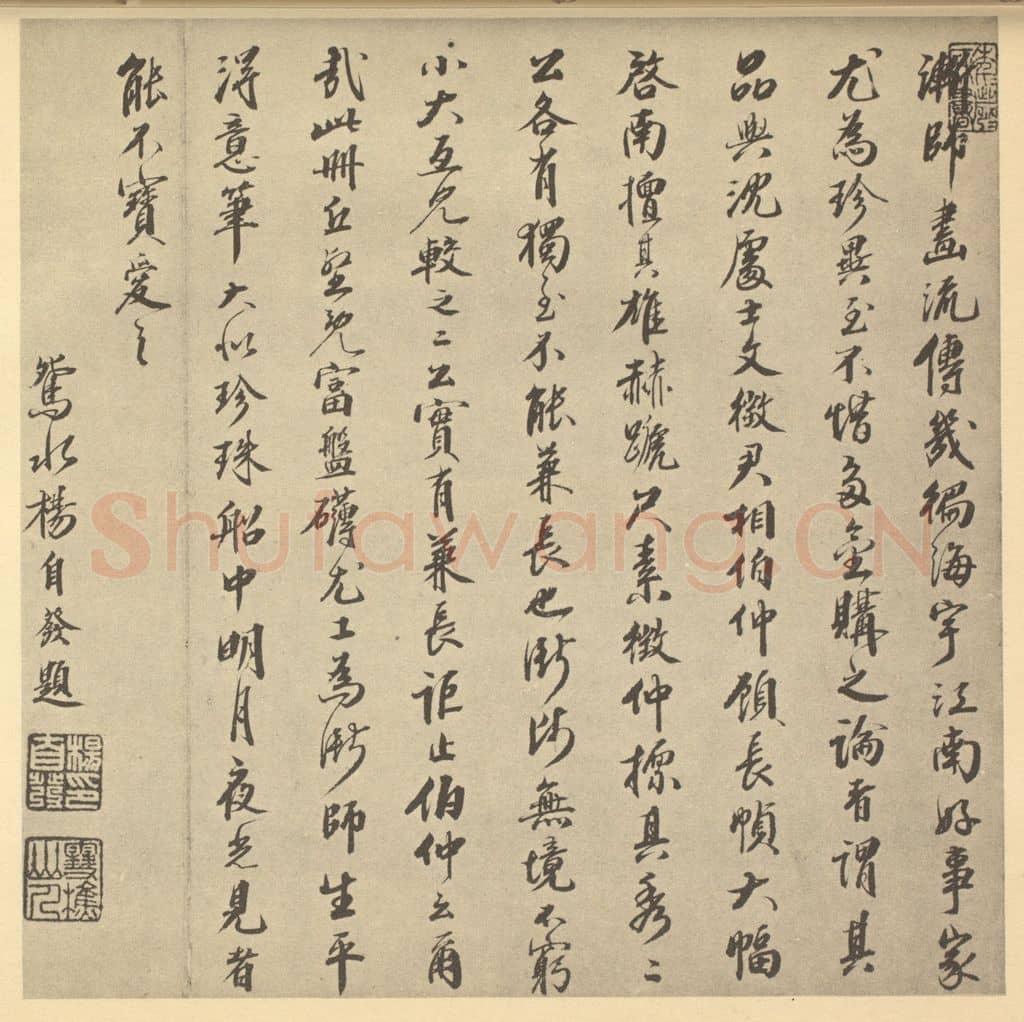 漸師畫流傳幾徧海宇江南好事家
尤為珍異至不惜多金購之論者謂其
品與沈處士文徵君相伯仲顧長幀大幅
啓南擅其雄赫蹏尺素徵仲標其秀二
公各有獨至不能兼長也漸師無境不窮
小大互見較之二公實有兼長詎止伯仲云爾
哉此冊丘壑既富盤礴尤工為漸師生平
得意筆大似珍珠船中明月夜光見者
能不寶愛之
鴛水楊自發題
楊印自發
Shufawang.CN